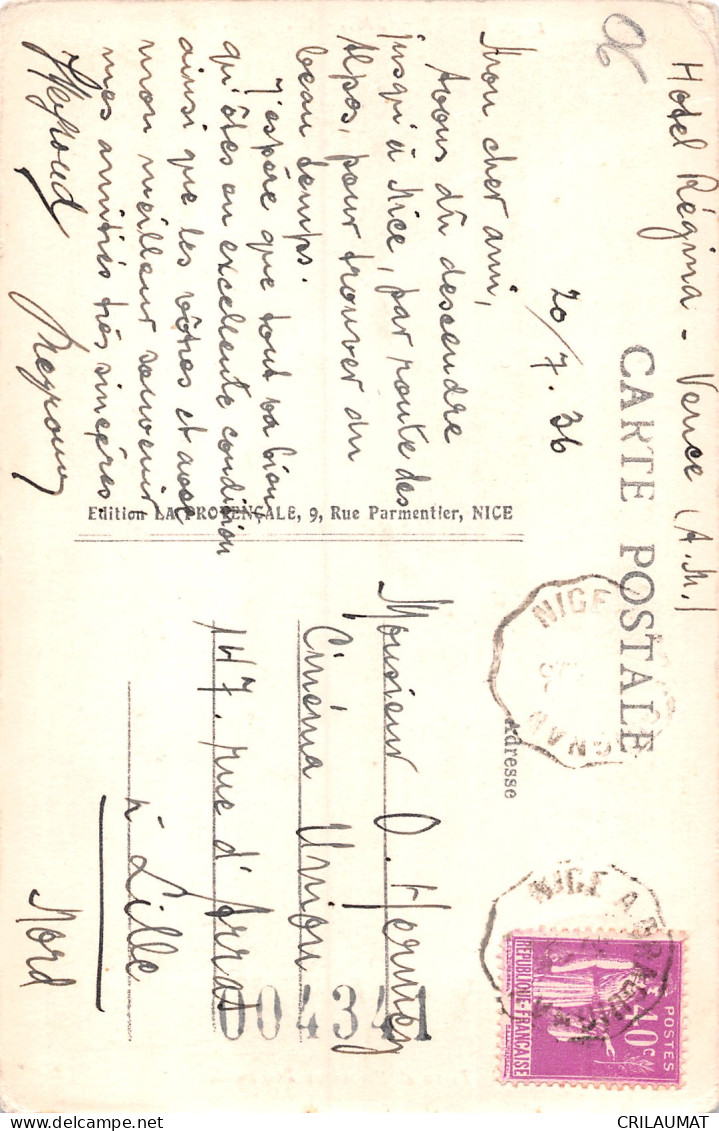 Hotel Régina - Vence (A.M.)
CARTE POSTALE
20/7.36
Mon cher ami,
Avons dû descendre
jusqu'à Nice, par route des
Alpes, pour trouver du
beau temps.
J'espère que tout va bien,
qu'êtes en excellente condition
ainsi que les vôtres et avec
mon meilleur souvenir
mes amitiés très sincères
Edition LA PROVENÇALE, 9, Rue Parmentier, NICE
Adresse
Monsieur O. Hermey
Cinéma Union
147. rue d'Arras
à Lille
Nord
004341
NICE
NICE A
POSTES
40c
REPUBLIQUE-FRANÇAISE
CRILAUMAT